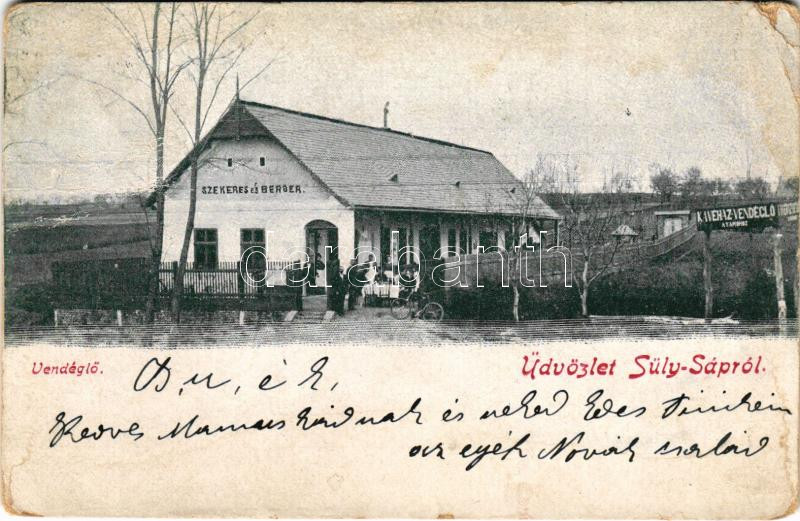 SZEKERES és BERGER.
KÁVEHÁZ-VENDÉGLŐ
darabanth
Vendéglő.
Üdvözlet Süly-Sápról.
B, u, é k,
Kedves Mamuskádnak és neked Édes
az egyék Novák család